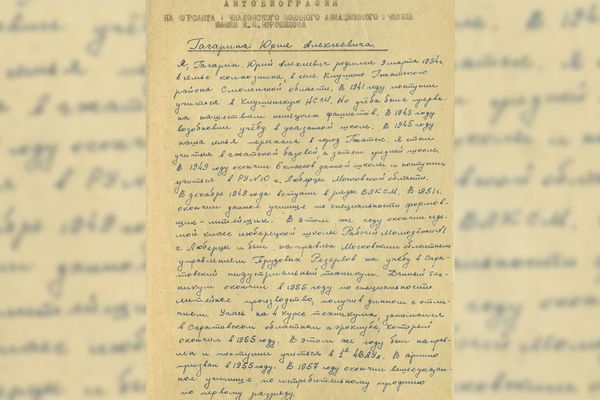 АВТОБИОГРАФИЯ
НА КУРСАНТА I ЧКАЛОВСКОГО ВОЕННОГО АВИАЦИОННОГО УЧИЛИЩА
ИМЕНИ К.Е.ВОРОШИЛОВА
Гагарина Юрия Алексеевича.
Я, Гагарин Юрий Алексеевич родился 9 марта 1934г.
в семье колхозника, в селе Клушино Гжатского
района Смоленской области. В 1941 году поступил
учиться в Клушинскую НСШ. Но учёба была прерва-
на нашествием немецких фашистов. В 1943 году
возобновил учёбу в указанной школе. В 1945 году
наша семья переехала в город Гжатск, я стал
учиться в гжатской базовой, а затем средней школе.
В 1949 году окончил 6 классов данной школы и поступил
учиться в РУ №10 г. Люберцы Московской области.
В декабре 1949 года вступил в ряды ВЛКСМ. В 1951г.
окончил данное училище по специальности формов-
щик-литейщик. В этом же году окончил седь-
мой класс люберецкой школы Рабочей Молодёжи №1
г. Люберцы и был направлен Московским областным
управлением Трудовых Резервов на учёбу в Сара-
товский индустриальный техникум. Данный тех-
никум окончил в 1955 году по специальности
литейное производство, получив диплом с отли-
чием. Учась на 4 курсе техникума, занимался
в Саратовском областном аэроклубе, который
окончил в 1955 году. В этом же году был направ-
лен и поступил учиться в 1е ЧВАУЛ. В армию
призван в 1955 году. В 1957 году окончил вышеуказан-
ное училище по истребительному профилю
по первому разряду.